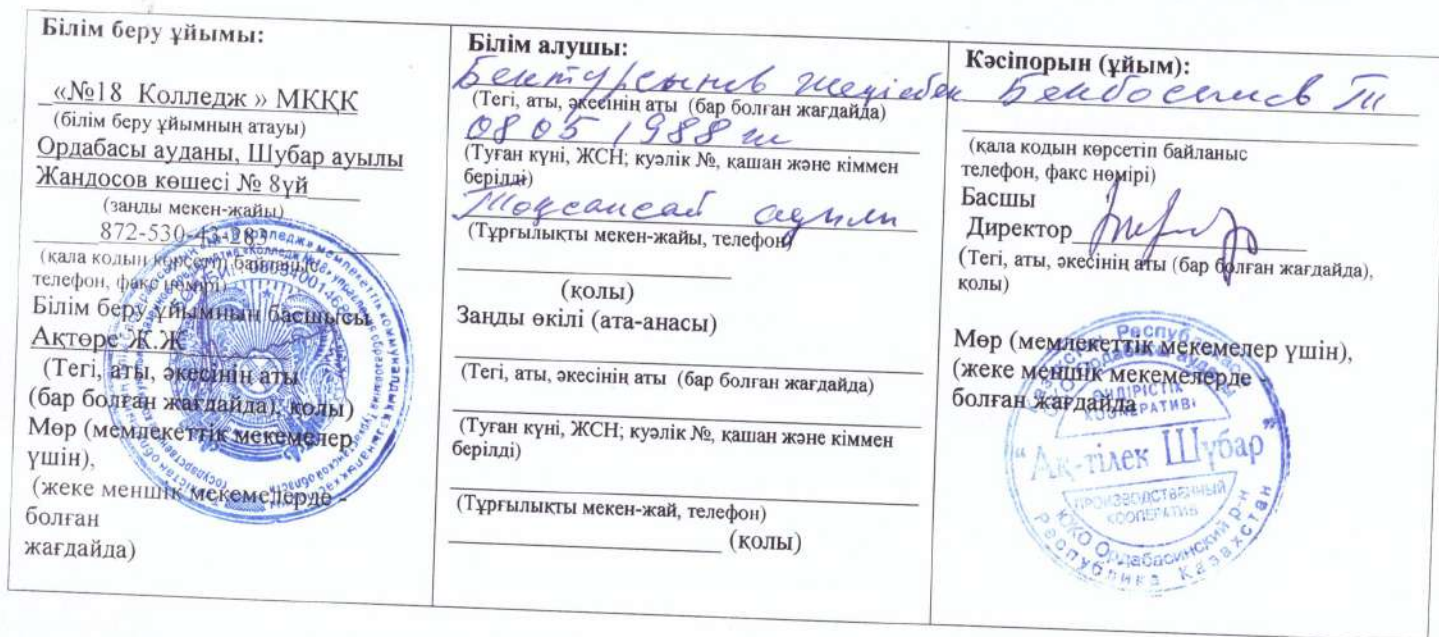 Білім беру ұйымы:
«№18 Колледж » МКҚК
(білім беру ұйымның атауы)
Ордабасы ауданы, Шубар ауылы
Жандосов көшесі № 8үй
(заңды мекен-жайы)
872-530-43-283
(қала кодын көрсетіп байланыс
телефон, факс нөмірі)
Білім беру ұйымның басшысы
Ақтөре Ж.Ж
(Тегі, аты, әкесінің аты
(бар болған жағдайда), қолы)
Мөр (мемлекеттік мекемелер
үшін),
(жеке меншік мекемелерде -
болған
жағдайда)
Білім алушы:
Бектурсынов
(Тегі, аты, әкесінің аты (бар болған жағдайда)
08 05 1988 ж
(Туған күні, ЖСН; куәлік №, қашан және кіммен
берілді)
Тоқсансай ауылы
(Тұрғылықты мекен-жайы, телефон)
(қолы)
Заңды өкілі (ата-анасы)
(Тегі, аты, әкесінің аты (бар болған жағдайда)
(Туған күні, ЖСН; куәлік №, қашан және кіммен
берілді)
(Тұрғылықты мекен-жай, телефон)
(қолы)
Кәсіпорын (ұйым):
Бекбосынов
(қала кодын көрсетіп байланыс
телефон, факс нөмірі)
Басшы
Директор
(Тегі, аты, әкесінің аты (бар болған жағдайда),
қолы)
Мөр (мемлекеттік мекемелер үшін),
(жеке меншік мекемелерде -
болған жағдайда
ӨНДІРІСТІК
КООПЕРАТИВІ
"Ақ-тілек Шұбар"
ПРОИЗВОДСТВЕННЫЙ
КООПЕРАТИВ
ЮКО Ордабасинский р-н
Республика Казахстан